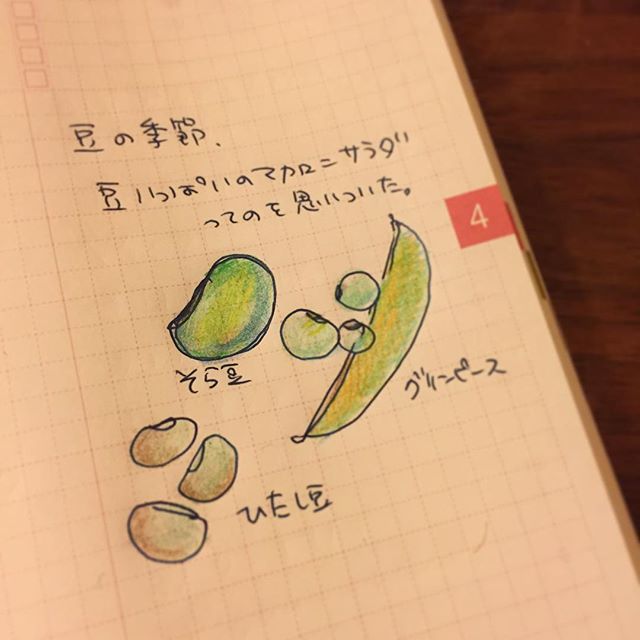 豆の季節、
豆いっぱいのマカロニサラダ
ってのを思いついた。
4
そら豆
グリンピース
ひたし豆